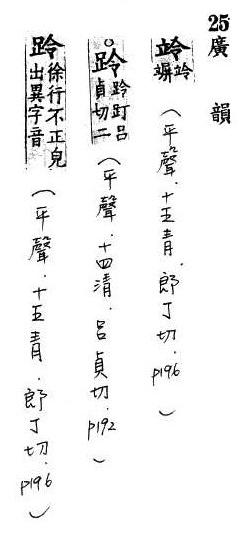 25廣韻
竛竛竮（平聲．十五青．郎丁切．p196）
。跉跉䟓吕貞切二（平聲．十四清．吕貞切．p192）
跉徐行不正皃出異字音（平聲．十五青．郎丁切．p196）